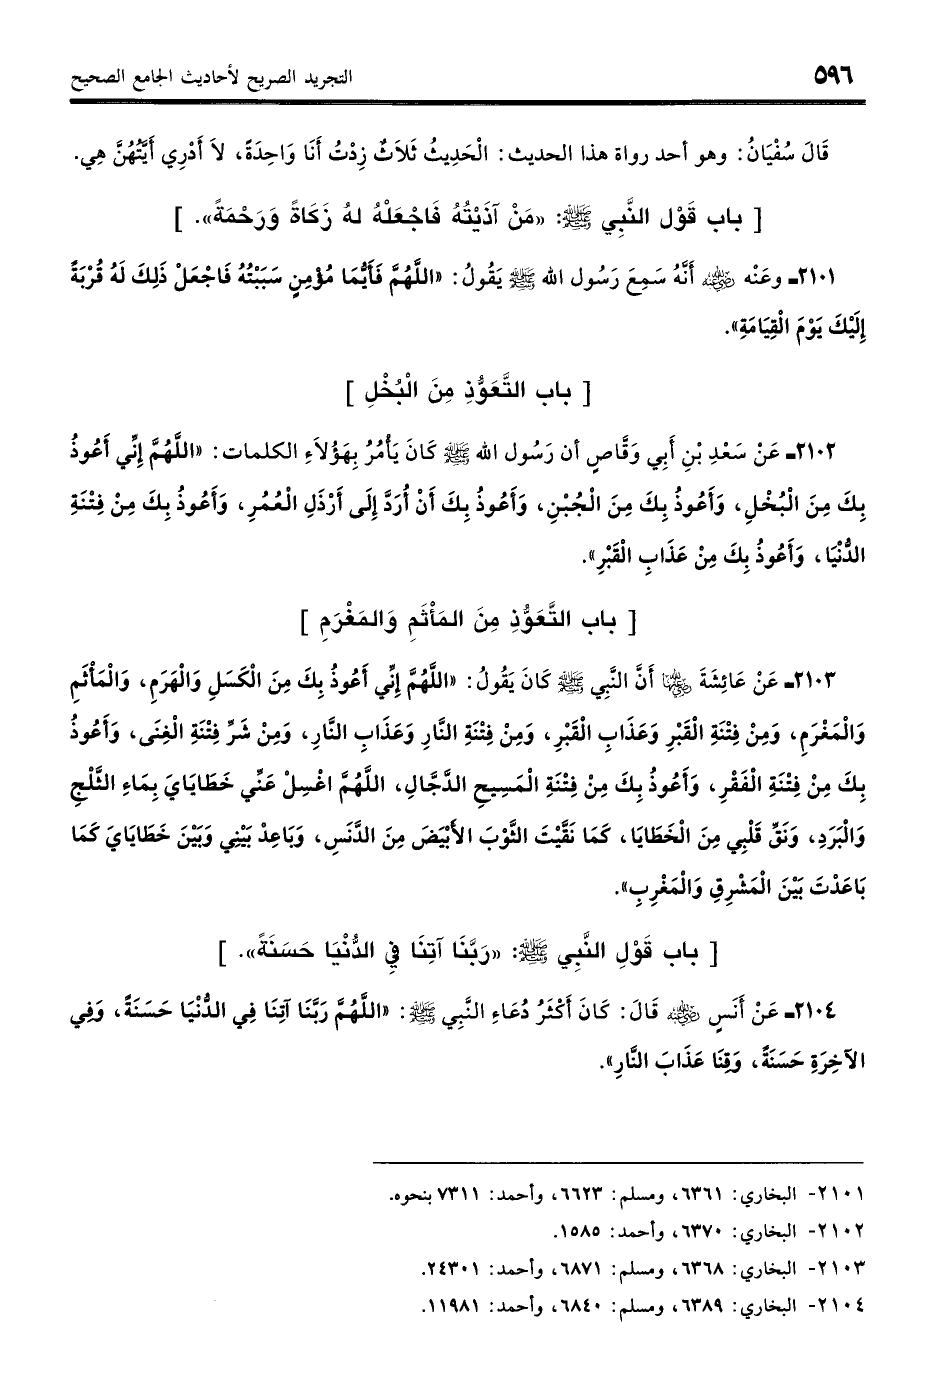 ٥٩٦
التجريد الصريح لأحاديث الجامع الصحيح
قَالَ سُفْيَانُ: وهو أحد رواة هذا الحديث: الْحَدِيثُ ثَلاَثٌ زِدْتُ أَنَا وَاحِدَةً، لاَ أَدْرِي أَيَّتُهُنَّ هِي.
[ باب قَوْل النَّبي ﷺ: «مَنْ آذَيْتُهُ فَاجْعَلْهُ لهُ زَكَاةً وَرَحْمَةً». ]
٢١٠١ـ وعَنْه رضي الله عنه أَنَّهُ سَمِعَ رَسُول الله ﷺ يَقُولُ: «اللَّهُمَّ فَأَيُّمَا مُؤْمِنٍ سَبَبْتُهُ فَاجْعَلْ ذَلِكَ لَهُ قُرْبَةً
إِلَيْكَ يَوْمَ الْقِيَامَةِ».
[ باب التَّعَوُّذِ مِنَ الْبُخْلِ ]
٢١٠٢ـ عَنْ سَعْدِ بْنِ أَبِي وَقَّاصٍ أن رَسُول الله ﷺ كَانَ يَأْمُرُ بِهَؤُلاَءِ الكلمات: «اللَّهُمَّ إِنِّي أَعُوذُ
بِكَ مِنَ الْبُخْلِ، وَأَعُوذُ بِكَ مِنَ الْجُبْنِ، وَأَعُوذُ بِكَ أَنْ أُرَدَّ إِلَى أَرْذَلِ الْعُمُرِ، وَأَعُوذُ بِكَ مِنْ فِتْنَةِ
الدُّنْيَا، وَأَعُوذُ بِكَ مِنْ عَذَابِ الْقَبْرِ».
[ باب التَّعَوُّذِ مِنَ المَأْثَمِ وَالمَغْرَمِ ]
٢١٠٣ـ عَنْ عَائِشَةَ رضي الله عنها أَنَّ النَّبي ﷺ كَانَ يَقُولُ: «اللَّهُمَّ إِنِّي أَعُوذُ بِكَ مِنَ الْكَسَلِ وَالْهَرَمِ، وَالْمَأْثَمِ
وَالْمَغْرَمِ، وَمِنْ فِتْنَةِ الْقَبْرِ وَعَذَابِ الْقَبْرِ، وَمِنْ فِتْنَةِ النَّارِ وَعَذَابِ النَّارِ، وَمِنْ شَرِّ فِتْنَةِ الْغِنَى، وَأَعُوذُ
بِكَ مِنْ فِتْنَةِ الْفَقْرِ، وَأَعُوذُ بِكَ مِنْ فِتْنَةِ الْمَسِيحِ الدَّجَّالِ، اللَّهُمَّ اغْسِلْ عَنِّي خَطَايَايَ بِمَاءِ الثَّلْجِ
وَالْبَرَدِ، وَنَقِّ قَلْبِي مِنَ الْخَطَايَا، كَمَا نَقَّيْتَ الثَّوْبَ الأَبْيَضَ مِنَ الدَّنَسِ، وَبَاعِدْ بَيْنِي وَبَيْنَ خَطَايَايَ كَمَا
بَاعَدْتَ بَيْنَ الْمَشْرِقِ وَالْمَغْرِبِ».
[ باب قَوْلِ النَّبي ﷺ: «رَبَّنَا آتِنَا فِي الدُّنْيَا حَسَنَةً». ]
٢١٠٤ـ عَنْ أَنَسٍ رضي الله عنه قَالَ: كَانَ أَكْثَرُ دُعَاءِ النَّبي ﷺ: «اللَّهُمَّ رَبَّنَا آتِنَا فِي الدُّنْيَا حَسَنَةً، وَفِي
الآخِرَةِ حَسَنَةً، وَقِنَا عَذَابَ النَّارِ».
٢١٠١- البخاري: ٦٣٦١، ومسلم: ٦٦٢٣، وأحمد: ٧٣١١ بنحوه.
٢١٠٢- البخاري: ٦٣٧٠، وأحمد: ١٥٨٥.
٢١٠٣- البخاري: ٦٣٦٨، ومسلم: ٦٨٧١، وأحمد: ٢٤٣٠١.
٢١٠٤- البخاري: ٦٣٨٩، ومسلم: ٦٨٤٠، وأحمد: ١١٩٨١.